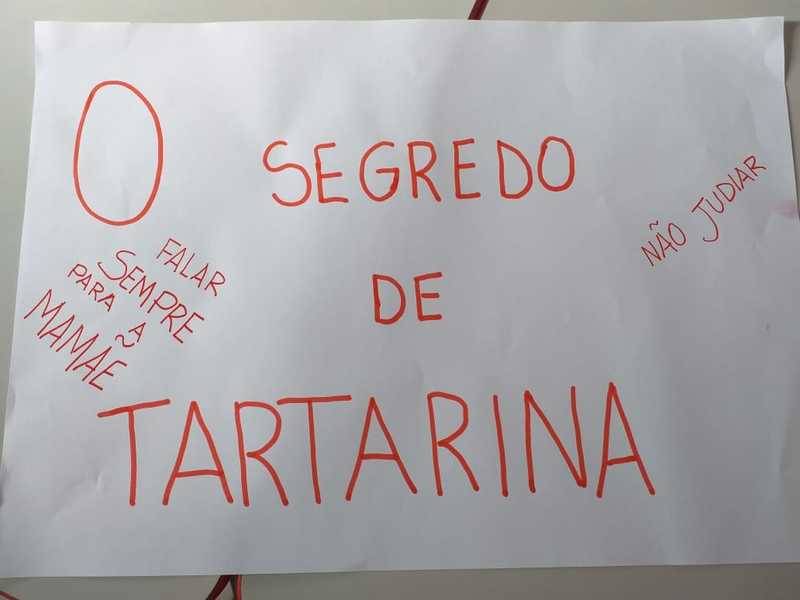 O SEGREDO
DE
TARTARINA
FALAR
SEMPRE
PARA A
MAMÃE
NÃO JUDIAR